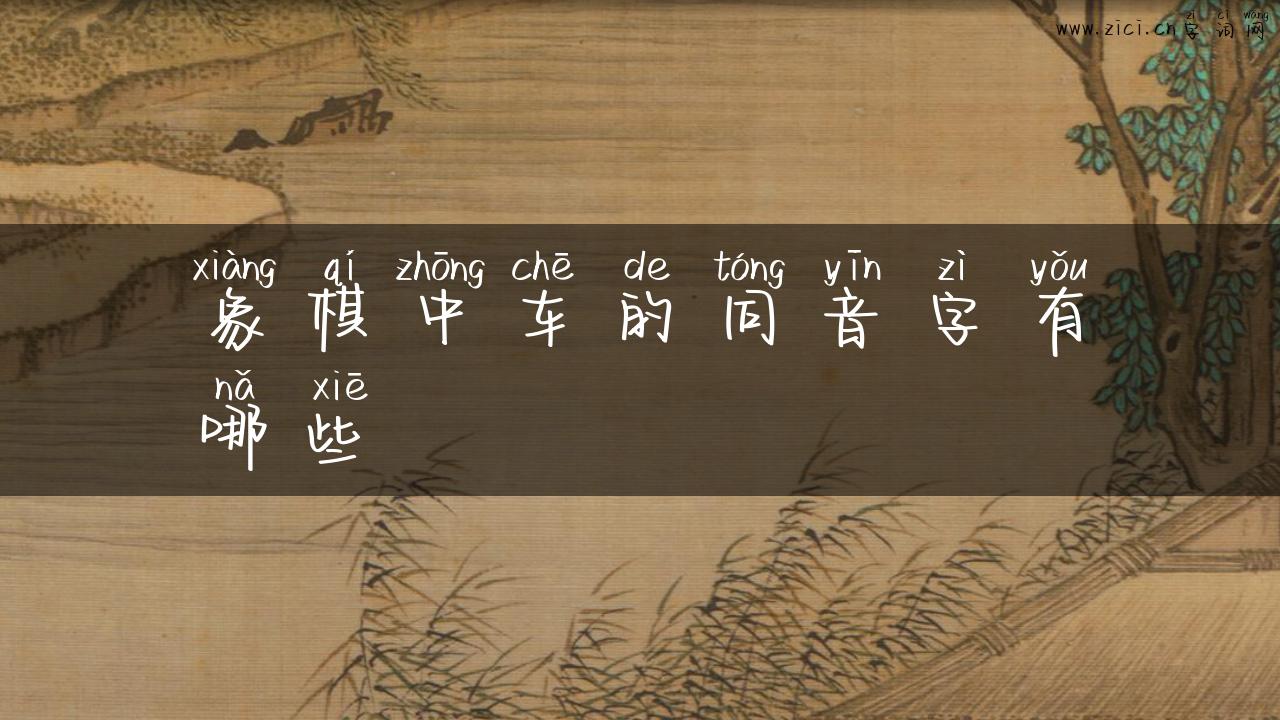 zì cí wǎng
www.zici.cn字词网
xiàng qí zhōng chē de tóng yīn zì yǒu
象棋中车的同音字有
nǎ xiē
哪些